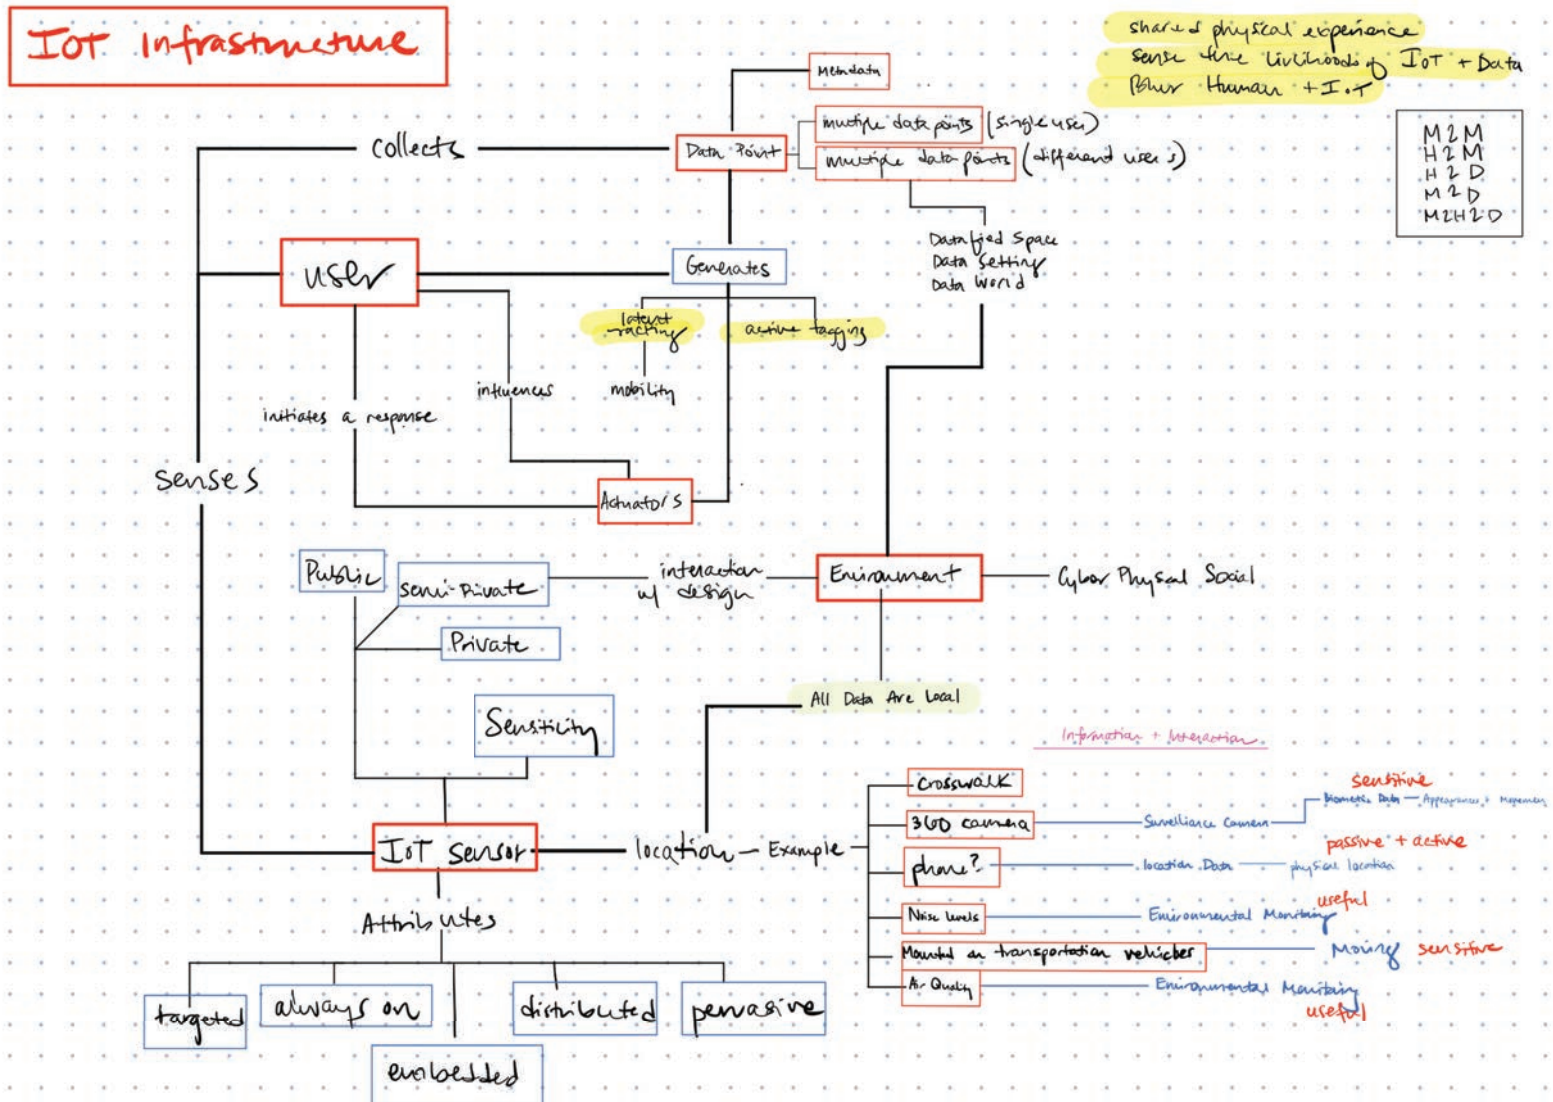 IoT Infrastructure
shared physical experience
sense the livlihood of IoT + Data
Blur Human + IoT
M2M
H2M
H2D
M2D
M2H2D
Metadata
collects
Data Point
multiple data points (single user)
multiple data points (different users)
Datafied Space
Data Setting
Data World
user
Generates
latent
active tagging
influences
mobility
initiates a response
senses
Actuators
Public
Semi-Private
interaction
w/ design
Environment
Cyber Physcal Social
Private
All Data Are Local
Sensiticity
Information + Interaction
crosswalk
sensitive
360 camera
Survelliance Camera
Biometric Data
Appearances + Movement
IoT sensor
location
Example
passive + active
phone?
location Data
physical location
Attributes
useful
Noise levels
Environmental Monitring
Mounted on transportation vehicles
Moving
sensitive
Air Quality
Environmental Monitring
useful
targeted
always on
embedded
distributed
pervasive